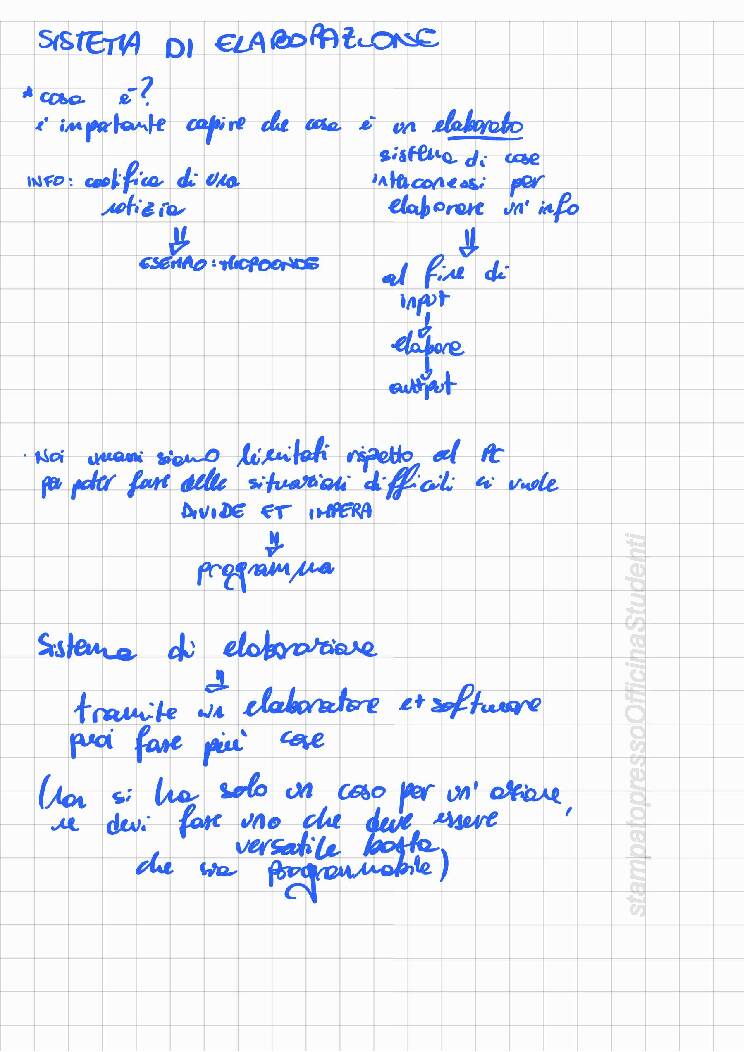 SISTEMA DI ELABORAZIONE
* cosa è?
è importante capire che cosa è un elaborato
sistema di cose
interconessi per
elaborare un'info
INFO: codifica di una
notizia
⇓
ESEMPIO: MICROONDE
⇓
al fine di
input
↓
elabora
↓
output
· Noi umani siamo limitati rispetto al PC
per poter fare delle situazioni difficili si vuole
DIVIDE ET IMPERA
⇓
programma
Sistema di elaborazione
⇓
tramite un elaboratore et software
puoi fare più cose
(non si ha solo un coso per un'azione,
ne devi fare uno che deve essere
versatile basta
che sia programmabile)
stampatopressoOfficinaStudenti